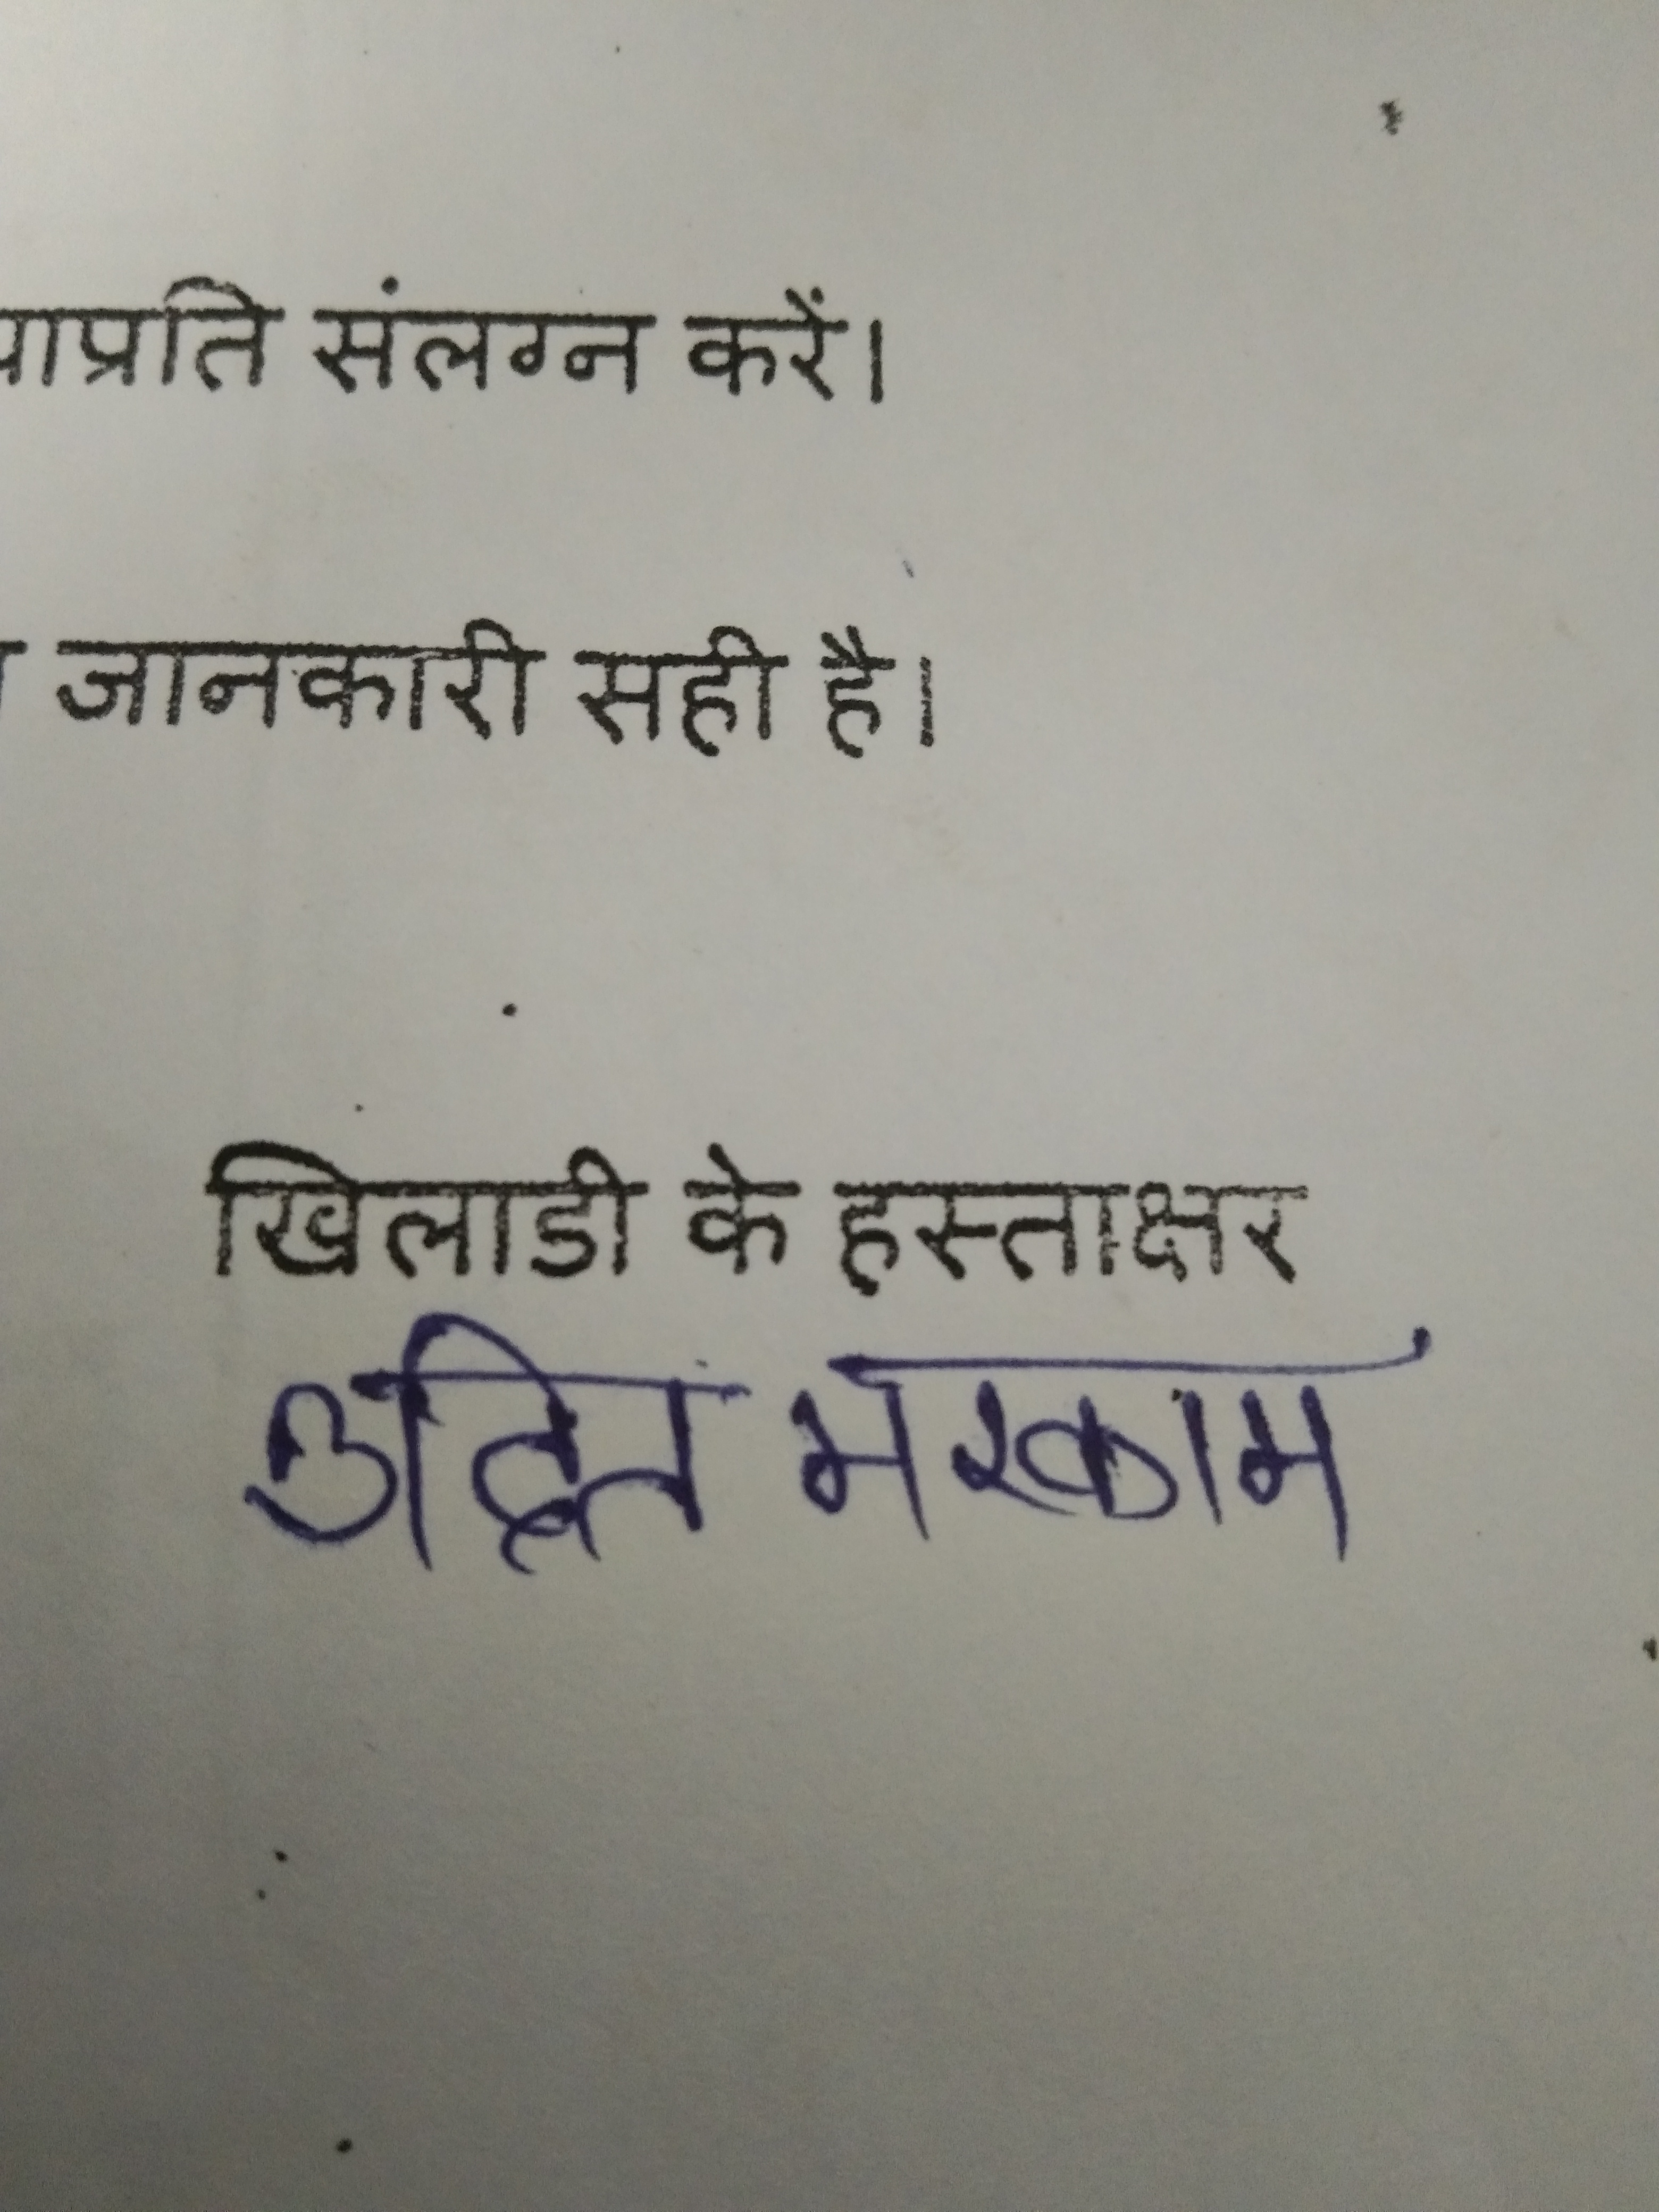 याप्रति संलग्न करें।
जानकारी सही है।
खिलाडी के हस्ताक्षर
मरकाम